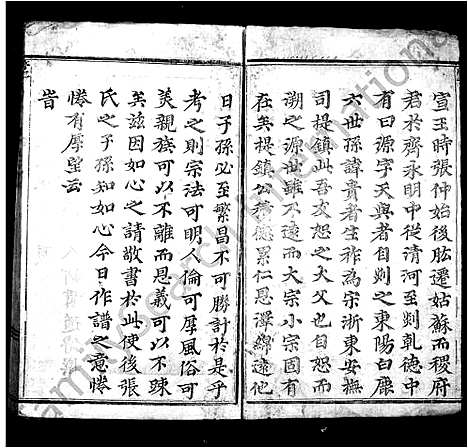 宣王時張仲始後肱遷姑蘇而稷府
君於齊永明中從清河至剡乾德中
有曰源字天與者自剡之東陽白鹿
六世孫諱貴者生祚為宋浙東安撫
司提鎮此吾友恕之大父也自恕而
溯之源世雖不遠而大宗小宗固有
在矣提鎮公積德累仁恩澤綿遠他
日子孫必至繁昌不可勝計於是乎
考之則宗法可明人倫可厚風俗可
美親族可以不離而恩義可以不踈
矣茲因如心之請敬書於此使後張
氏之子孫知如心今日作譜之意惓
惓有厚望云
旹